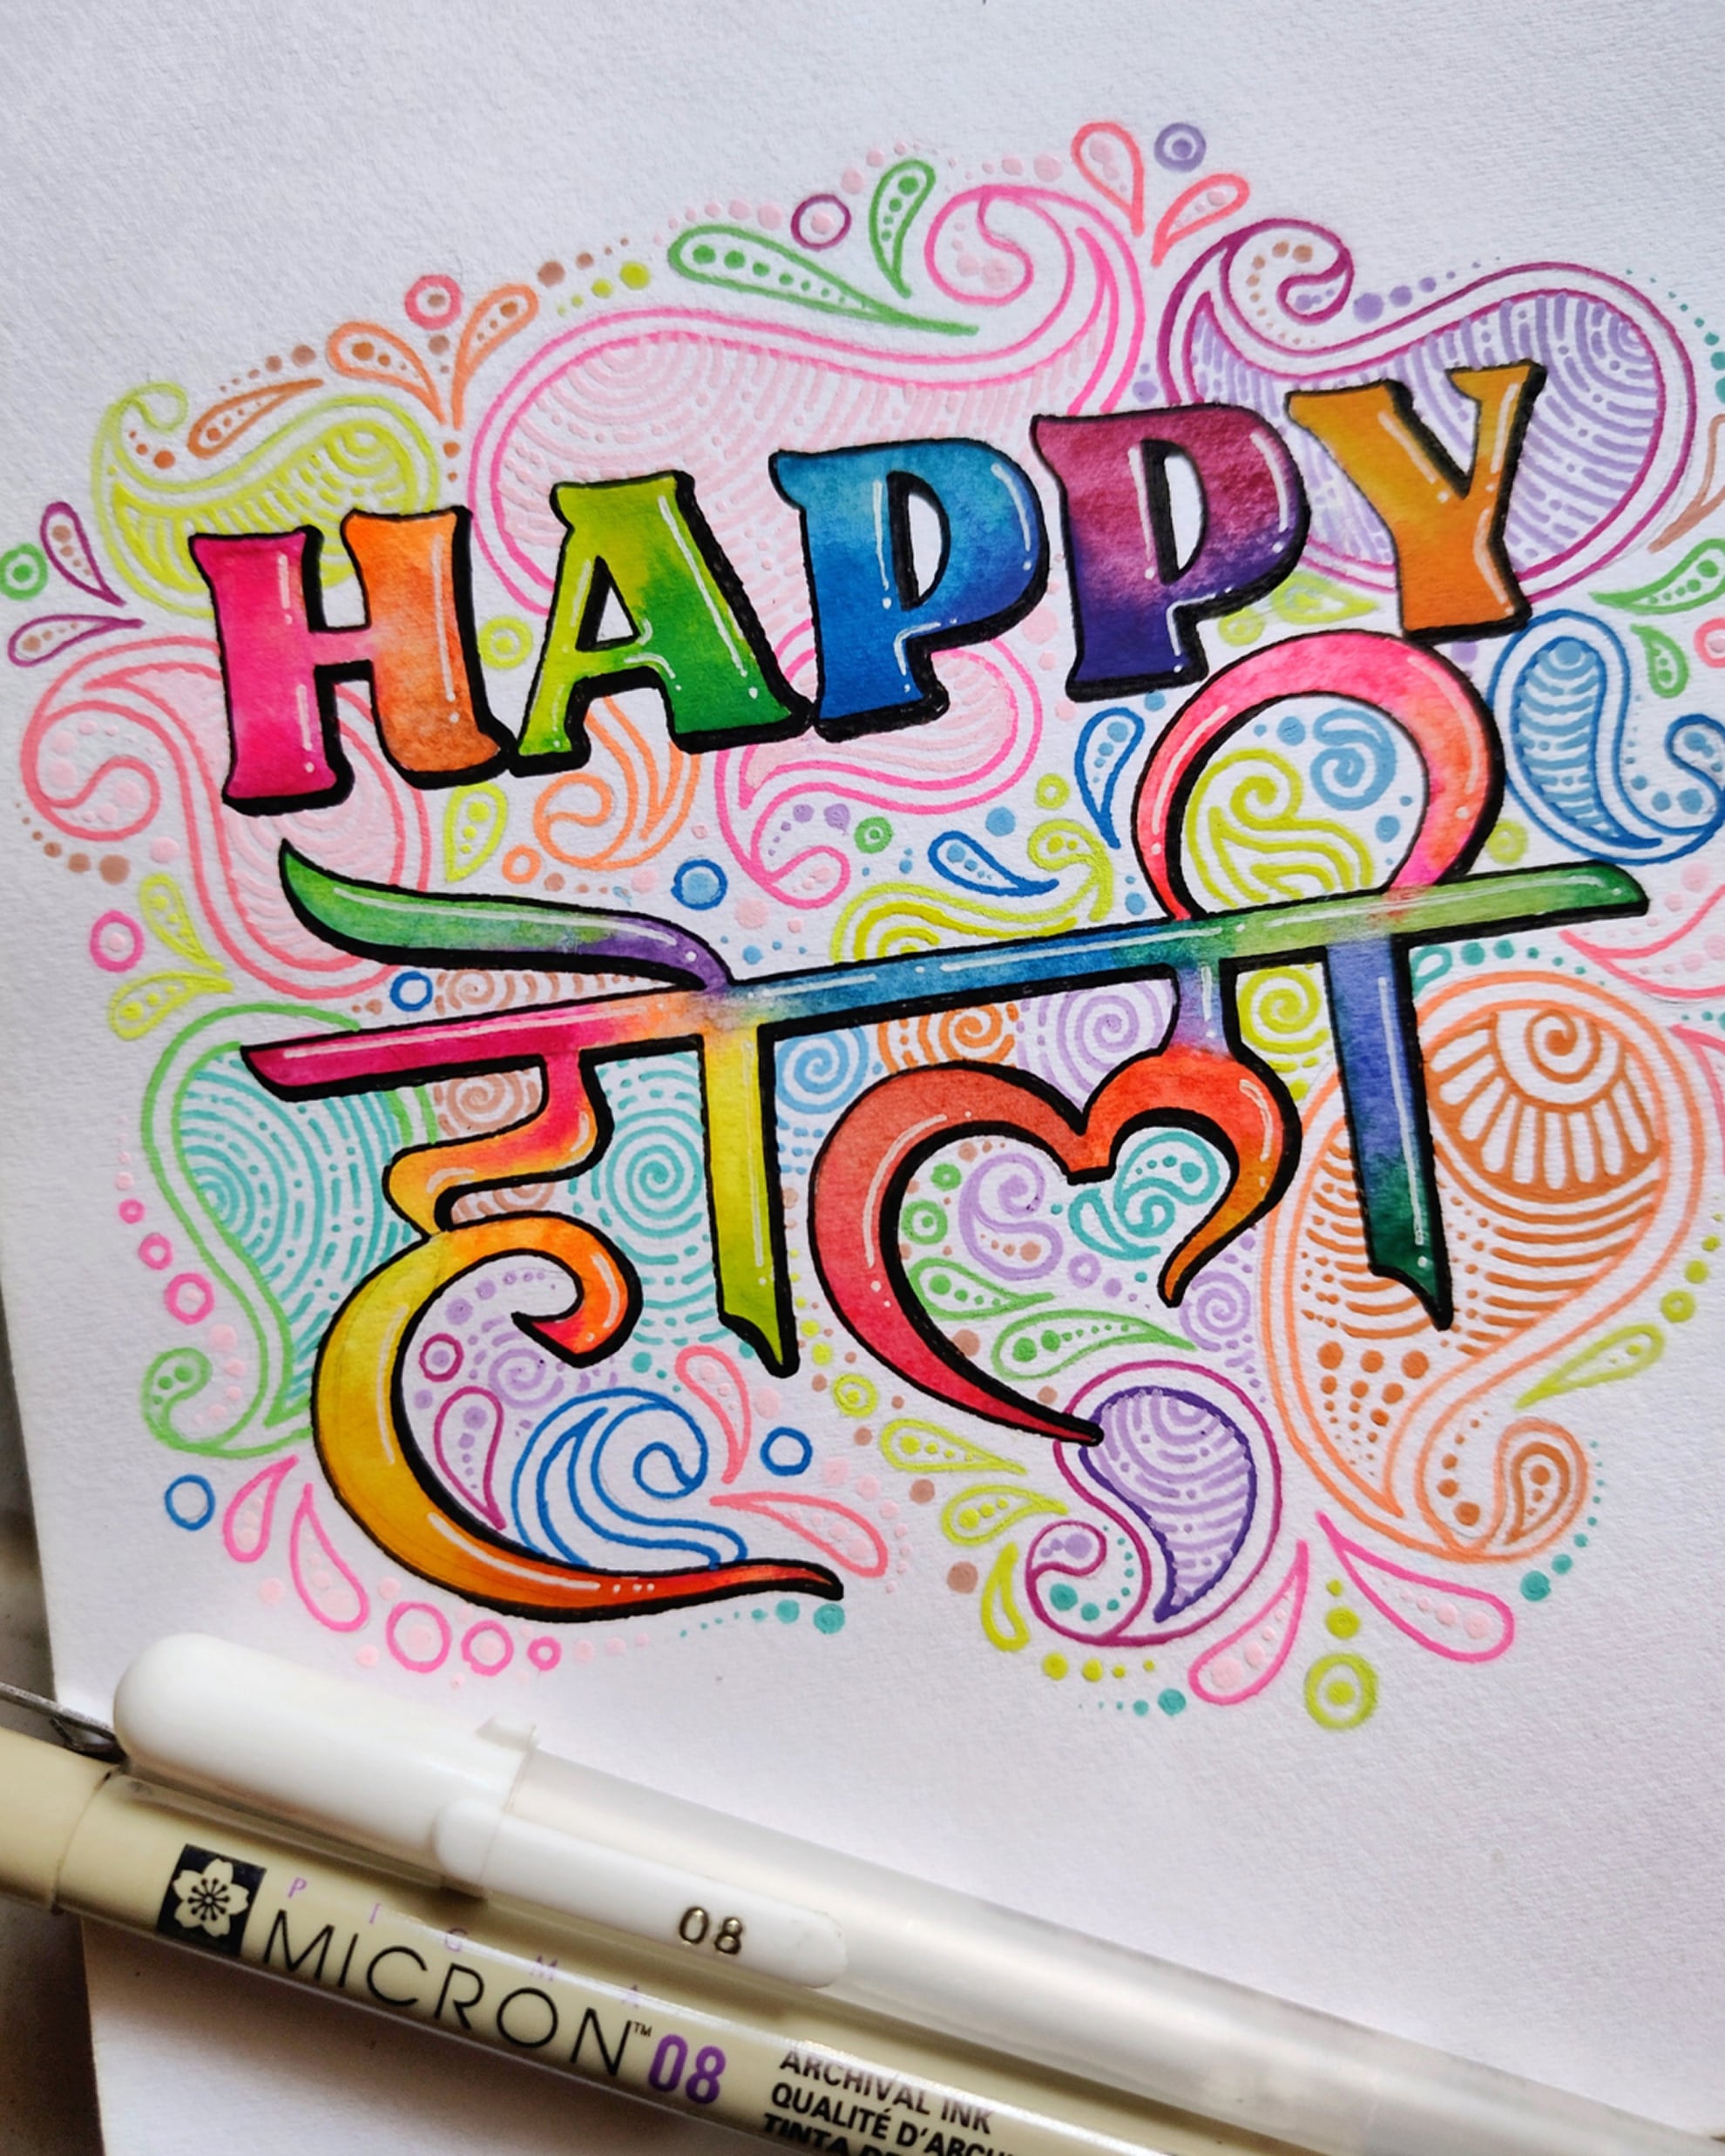 HAPPY
होली
08
PIGMA
MICRON™ 08
ARCHIVAL INK
QUALITÉ D'ARCHI
TINTA DE